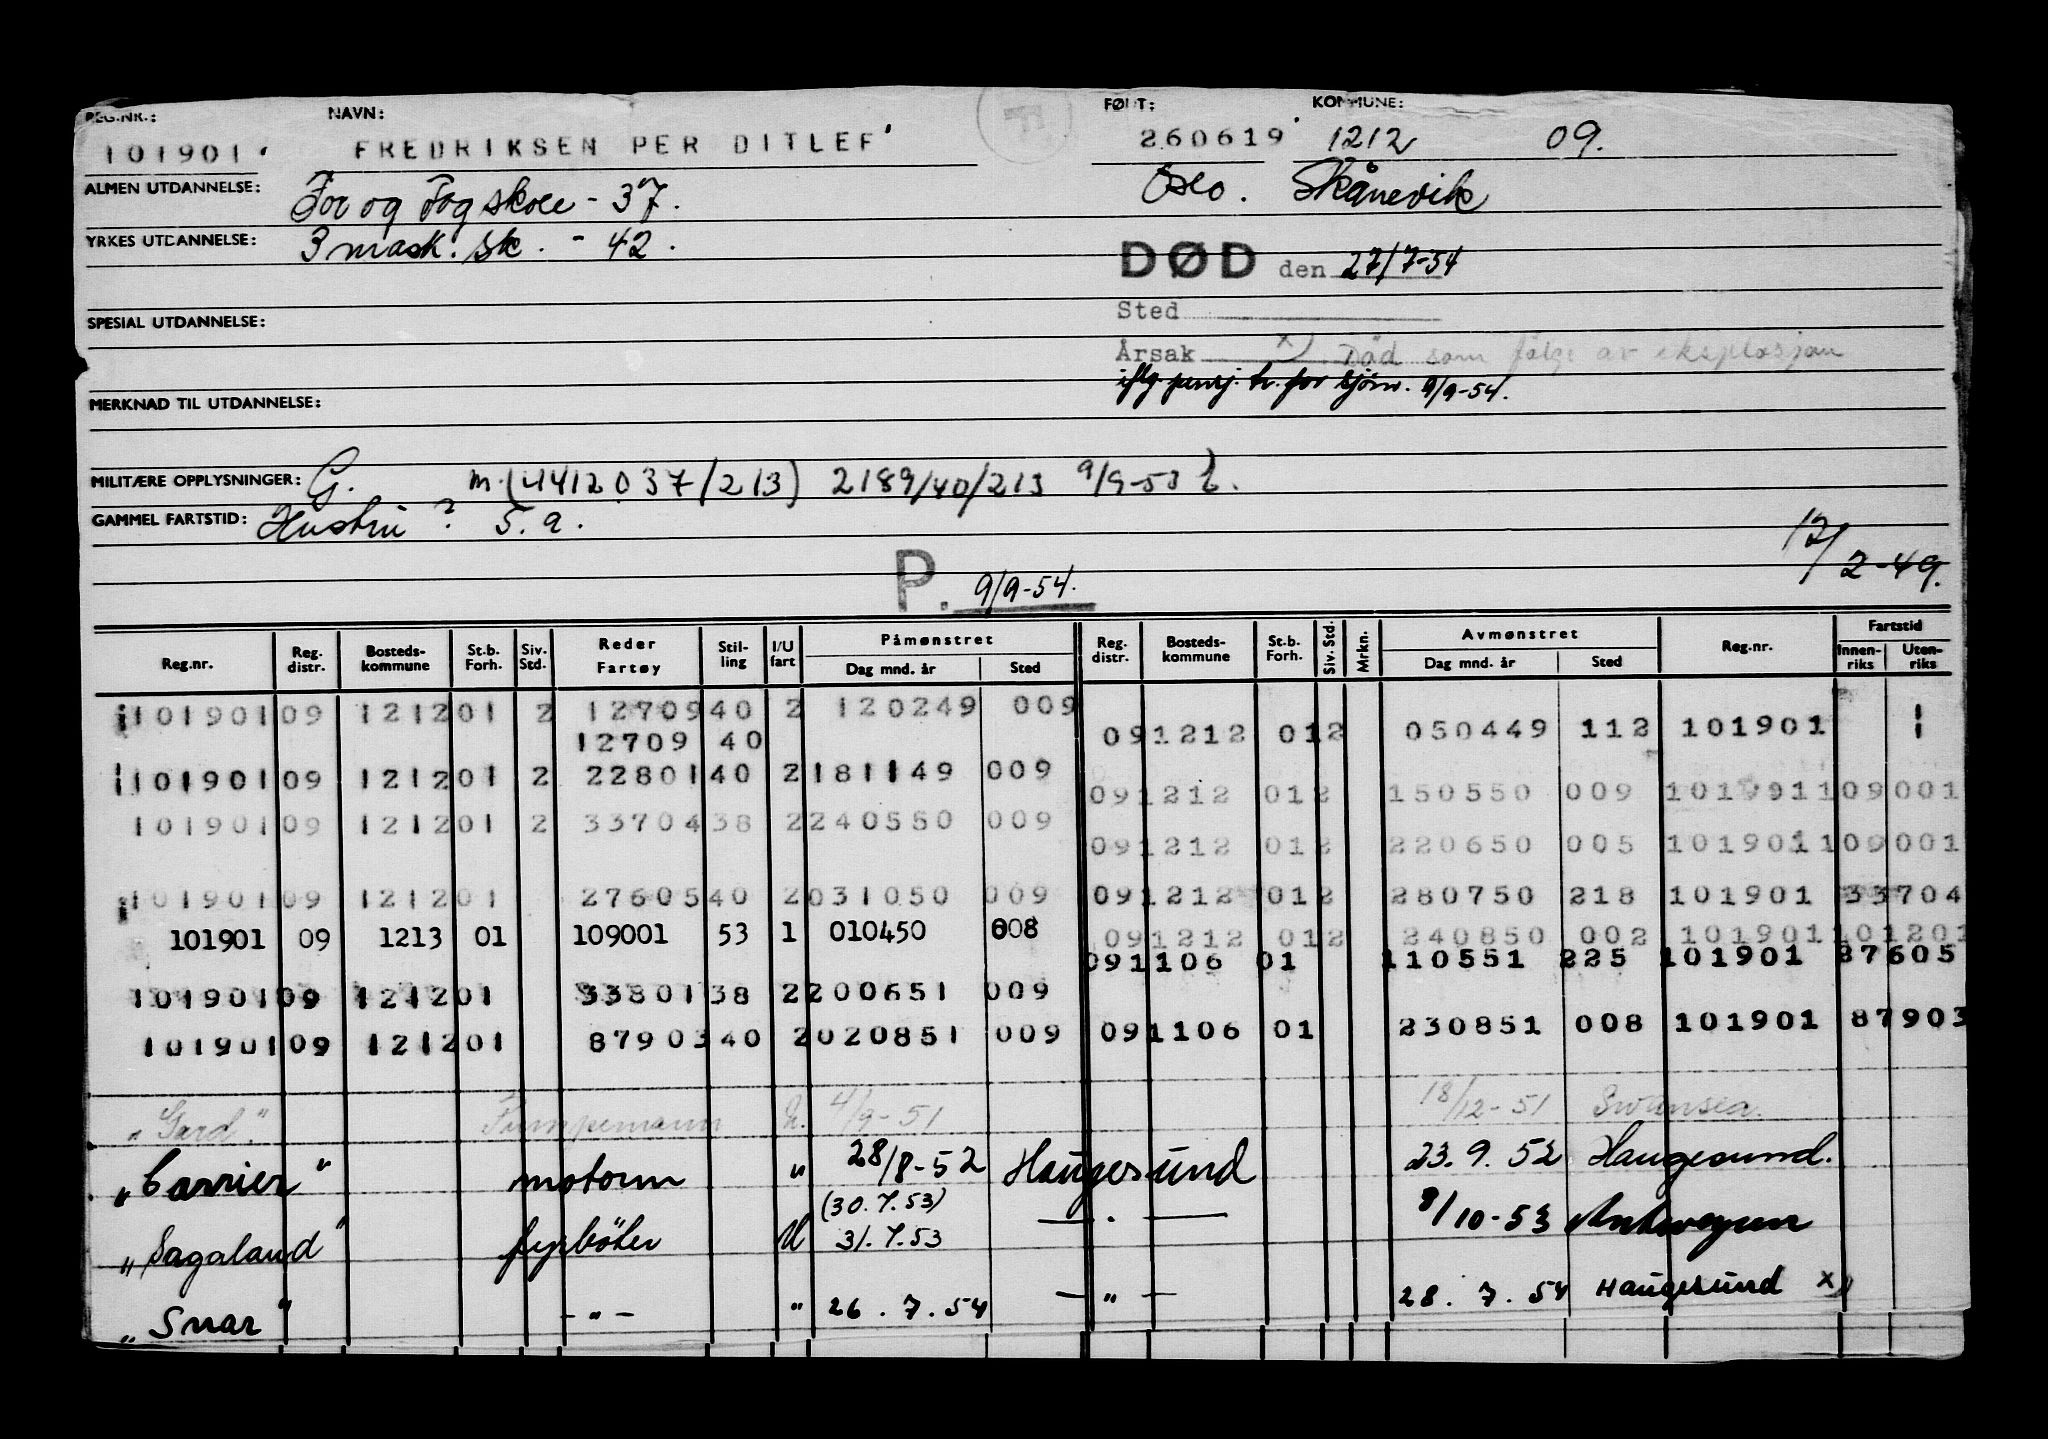 REG.NR.: NAVN: FØDT: KOMMUNE:
101901. FREDRIKSEN PER DITLEF 260619 1212 09.
ALMEN UTDANNELSE: For og Fog skole - 37. Oslo. Skånevik
YRKES UTDANNELSE: 3 mask. sk. - 42.
DØD den 27/7-54
Sted
SPESIAL UTDANNELSE:
Årsak x) Død som følge av eksplosjon
iflg. pensj. tr. for sjøm. 9/9-54.
MERKNAD TIL UTDANNELSE:
MILITÆRE OPPLYSNINGER: G. m. (4412037/213) 2189/40/213 9/9-53
GAMMEL FARTSTID: Hustru ? 5. a.
12/2-49.
P. 9/9-54.
Reg.nr. Reg. distr. Bosteds-kommune St.b. Forh. Siv. Std. Reder Fartøy Stil-ling I/U fart Påmønstret Dag mnd. år Sted Reg. distr. Bosteds-kommune St.b. Forh. Siv. Std. Mrkn. Avmønstret Dag mnd. år Sted Reg.nr. Fartstid Innen-riks Uten-riks
101901 09 1212 01 2 12709 40 2 120249 009
12709 40 09 1212 01 2 050449 112 101901
101901 09 1212 01 2 22801 40 2 181149 009
09 1212 01 2 150550 009 101901 109001
101901 09 1212 01 2 33704 38 2 240550 009
09 1212 01 2 220650 005 101901 109001
101901 09 1212 01 27605 40 2 031050 009 09 1212 01 2 280750 218 101901 33704
101901 09 1213 01 109001 53 1 010450 008 09 1212 01 2 240850 002 101901 101201
09 1106 01 110551 225 101901 87605
101901 09 1212 01 33801 38 2 200651 009
101901 09 1212 01 87903 40 2 020851 009 09 1106 01 230851 008 101901 87903
"Gard" Pumpemann U. 4/9-51 18/12-51 Swansea.
"Carrier" motorm " 28/8-52 Haugesund 23.9.52 Haugesund.
(30.7.53)
"Sagaland" fyrbøter U 31.7.53 — " — 8/10-53 Antwerpen
"Snar" - " - " 26.7.54 — " — 28.7.54 Haugesund x)